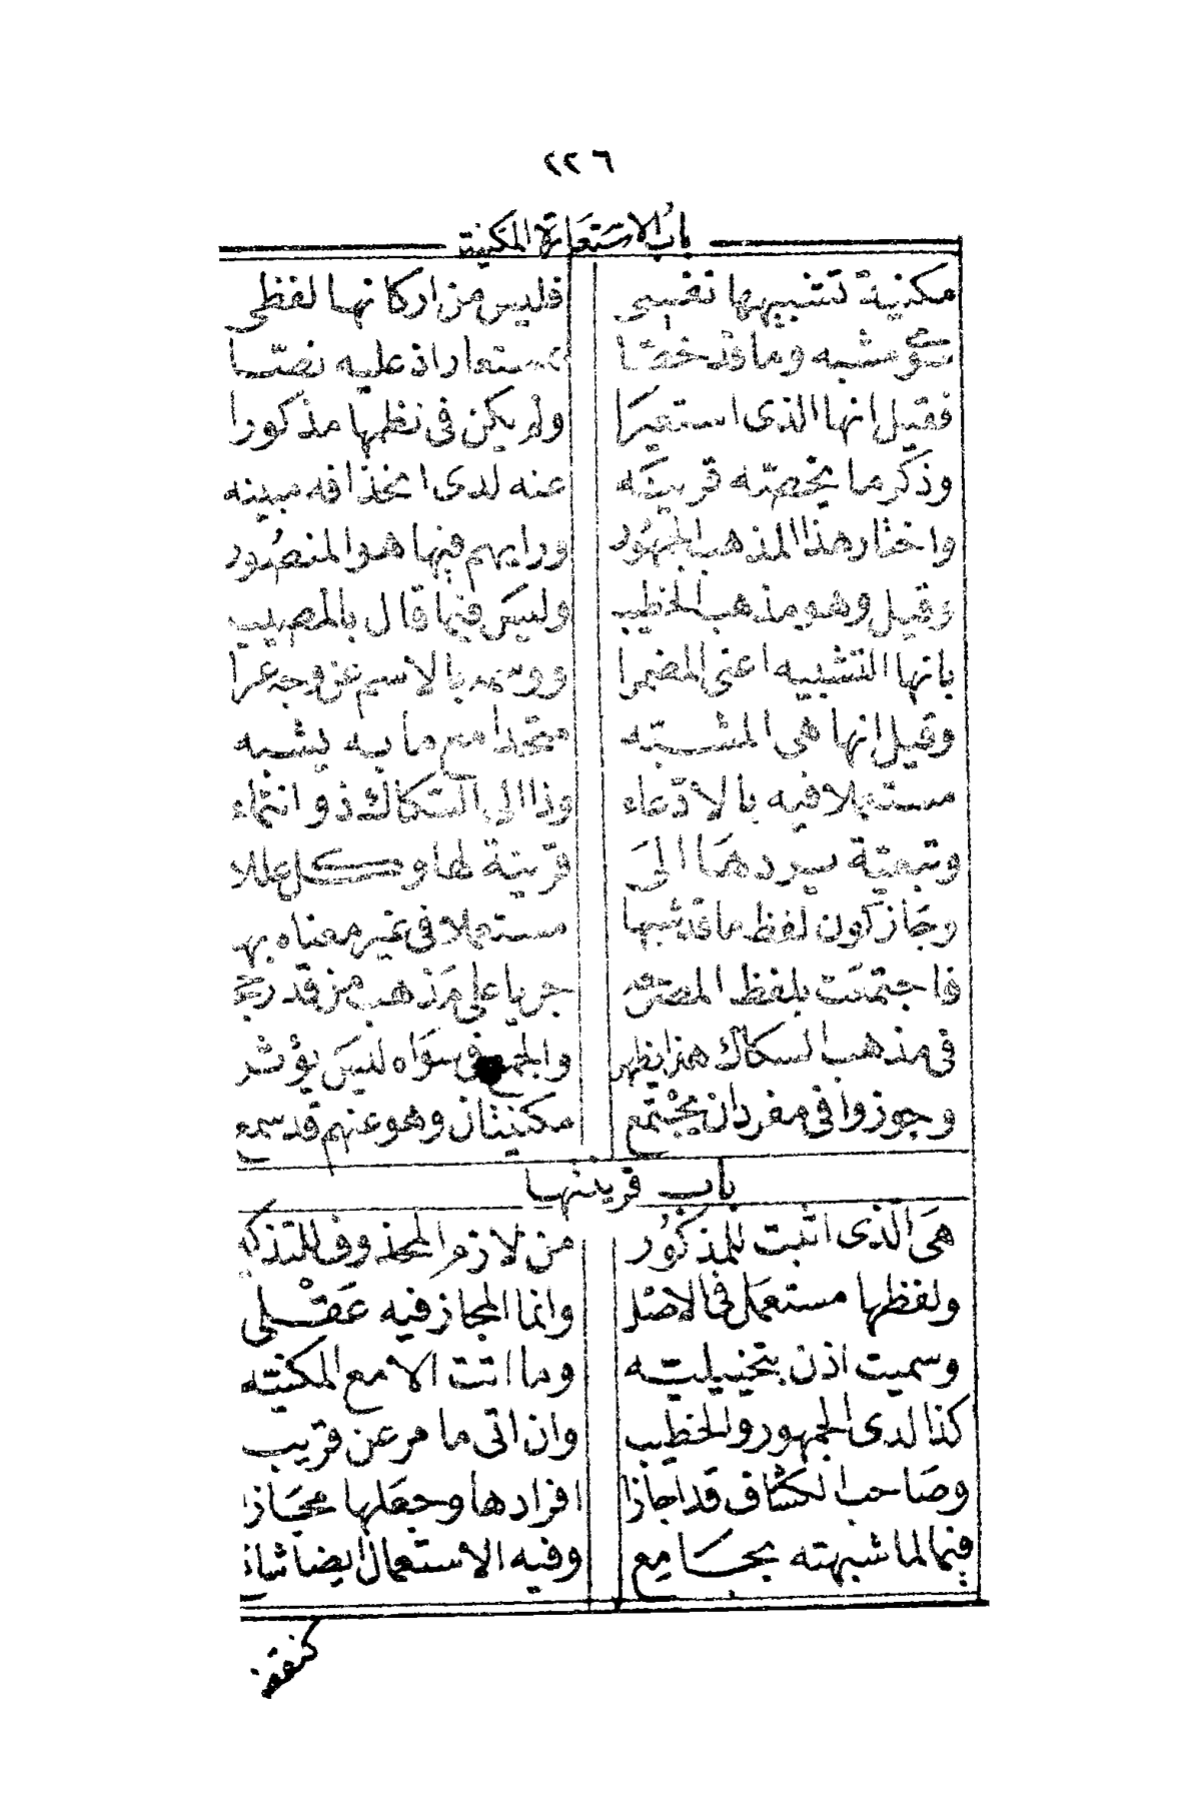 ٢٢٦
باب الاستعارة المكنية
مكنية تشبيهها نفسي فليس من اركانها لفظي
مشبه وما قد خصا مستعار اذ عليه نصا
فقيل انها الذى استعيرا ولم يكن فى نظمها مذكورا
وذكر ما يخصه قرينه عنه لدى مبينه
واختار هذا المذهب الجمهور ورايهم فيها هو المنصور
وقيل وهو مذهب الخطيب وليس فيما قال بالمصيب
بانها التشبيه اعنى المضمرا بالاسم عن وجه عرا
وقيل انها هى المشبه متحدا مع ما به يشبه
مستعملا فيه بالادعاء وذا الى السكاك ذو انتماء
وتبعية يردها الى قرينة لها وكل عللا
وجاز كون لفظ ما قد شبها مستعملا فى غير معناه بها
فاجتمعت بلفظ المصرحه جريا على مذهب من قد رجحه
فى مذهب السكاك هذا يظهر والجمع فى سواه ليس يؤثر
وجوزوا فى مفرد ان يجتمع مكنيتان وهو عنهم قد سمع
باب قرينتها
هى الذى اثبت للمذكور من لازم المحذوف للتذكير
ولفظها مستعمل فى الاصل وانما المجاز فيه عقلى
وسميت اذن بتخييليه وما اتت الا مع المكنيه
كذا لدى الجمهور والخطيب وان اتى ما مر عن قريب
وصاحب الكشاف قد اجازا افرادها وجعلها مجازا
فيما لما شبهته بجامع وفيه الاستعمال ايضا شائع